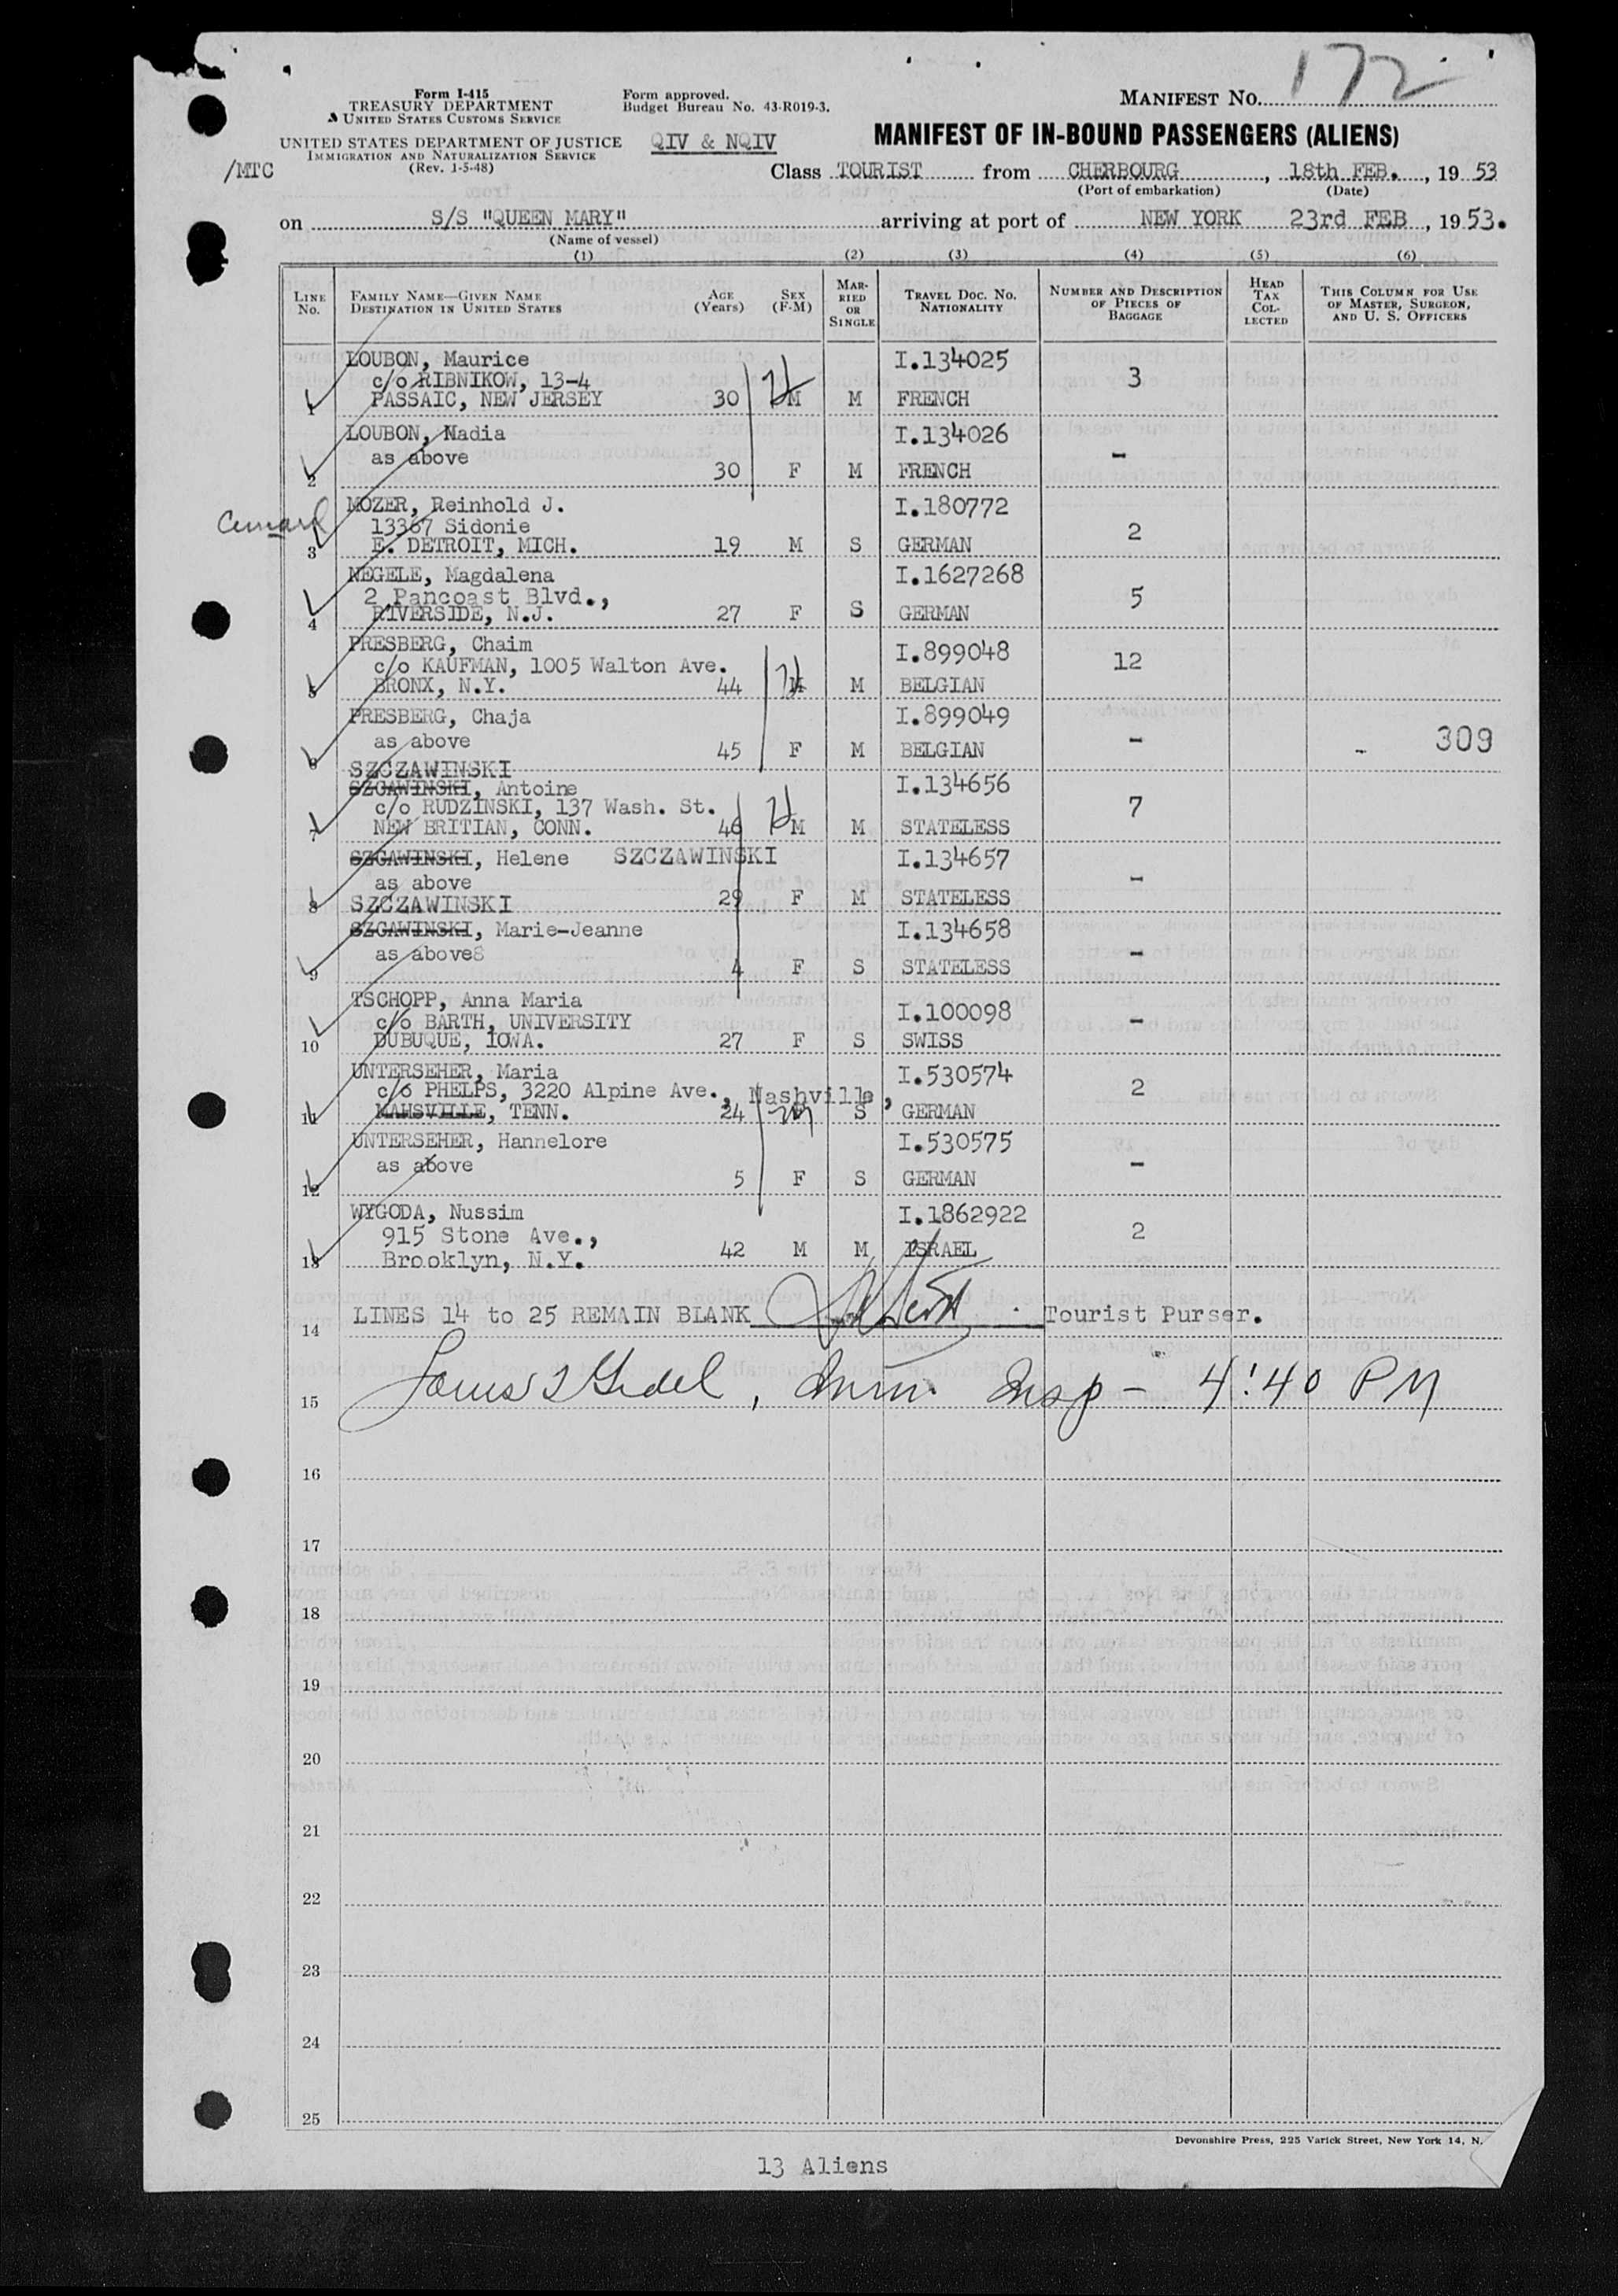 172
Form I-415
TREASURY DEPARTMENT
UNITED STATES CUSTOMS SERVICE
UNITED STATES DEPARTMENT OF JUSTICE
IMMIGRATION AND NATURALIZATION SERVICE
(Rev. 1-5-48)
/MTC
Form approved.
Budget Bureau No. 43-R019-3.
QIV & NQIV
MANIFEST NO.
MANIFEST OF IN-BOUND PASSENGERS (ALIENS)
Class TOURIST from CHERBOURG, 18th FEB., 19 53
(Port of embarkation) (Date)
on S/S "QUEEN MARY" arriving at port of NEW YORK 23rd FEB, 19 53.
(Name of vessel)
(1) (2) (3) (4) (5) (6)
LINE NO. FAMILY NAME—GIVEN NAME DESTINATION IN UNITED STATES AGE (YEARS) SEX (F-M) MARRIED OR SINGLE TRAVEL DOC. NO. NATIONALITY NUMBER AND DESCRIPTION OF PIECES OF BAGGAGE HEAD TAX COLLECTED THIS COLUMN FOR USE OF MASTER, SURGEON, AND U. S. OFFICERS
LOUBON, Maurice I.134025
c/o RIBNIKOW, 13-4 3
1 PASSAIC, NEW JERSEY 30 M M FRENCH
LOUBON, Nadia I.134026
as above -
2 30 F M FRENCH
MOZER, Reinhold J. I.180772
Cunard 13367 Sidonie 2
3 E. DETROIT, MICH. 19 M S GERMAN
NEGELE, Magdalena I.1627268
2 Pancoast Blvd., 5
4 RIVERSIDE, N.J. 27 F S GERMAN
PRESBERG, Chaim I.899048
c/o KAUFMAN, 1005 Walton Ave. 12
5 BRONX, N.Y. 44 M M BELGIAN
PRESBERG, Chaja I.899049
as above - - 309
6 45 F M BELGIAN
SZCZAWINSKI
SZCAWINSKI, Antoine I.134656
c/o RUDZINSKI, 137 Wash. St. 7
7 NEW BRITIAN, CONN. 46 M M STATELESS
SZCAWINSKI, Helene SZCZAWINSKI I.134657
as above -
8 29 F M STATELESS
SZCZAWINSKI
SZCAWINSKI, Marie-Jeanne I.134658
as aboves -
9 4 F S STATELESS
TSCHOPP, Anna Maria I.100098
c/o BARTH, UNIVERSITY -
10 DUBUQUE, IOWA. 27 F S SWISS
UNTERSEHER, Maria I.530574
c/o PHELPS, 3220 Alpine Ave., Nashville, 2
11 NAHSVILLE, TENN. 24 F S GERMAN
UNTERSEHER, Hannelore I.530575
as above -
12 5 F S GERMAN
WYGODA, Nussim I.1862922
915 Stone Ave., 2
13 Brooklyn, N.Y. 42 M M ISRAEL
14 LINES 14 to 25 REMAIN BLANK Tourist Purser.
15 , Imm. Insp - 4:40 PM
16
17
18
19
20
21
22
23
24
25
Devonshire Press, 225 Varick Street, New York 14, N.
13 Aliens